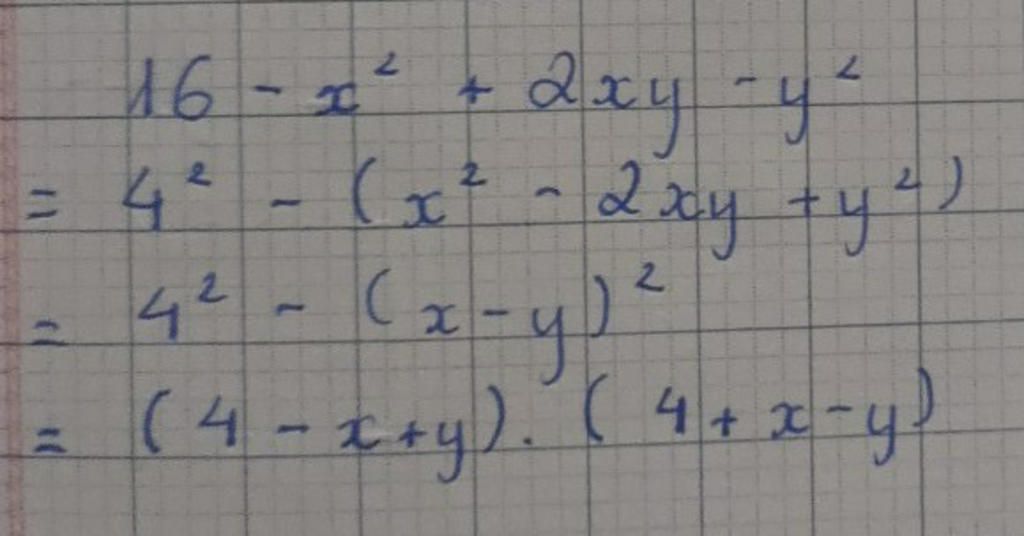 16 - x² + 2xy - y²
= 4² - (x² - 2xy + y²)
= 4² - (x - y)²
= (4 - x + y) . (4 + x - y)